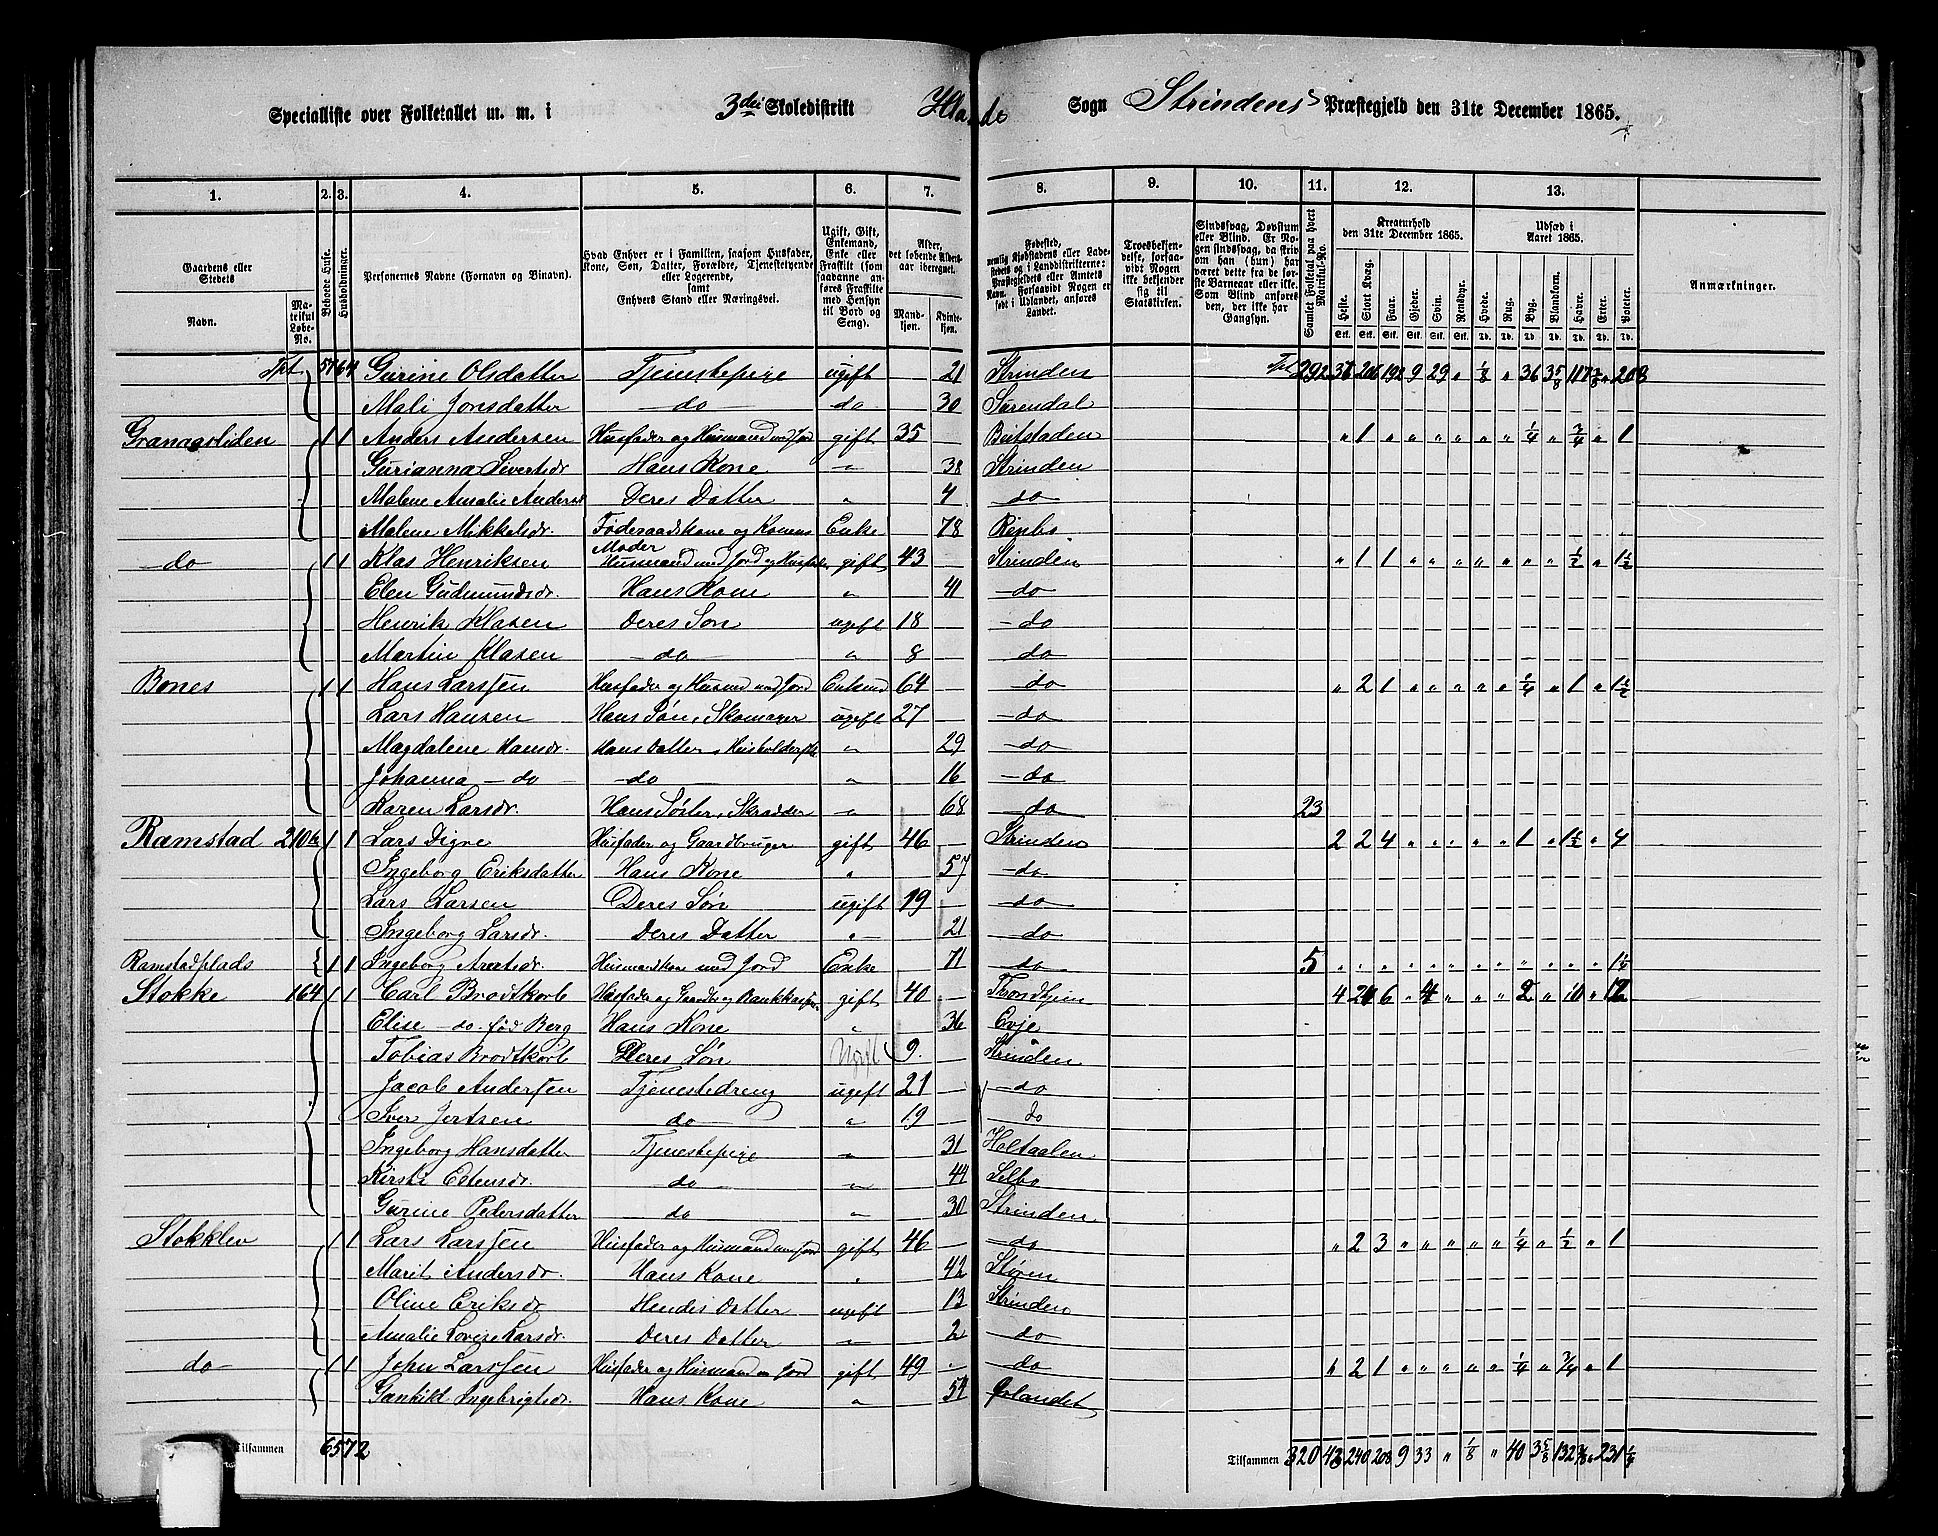 Specialliste over Folketallet m. m. i 3die Skoledistrikt Sogn Strindens Præstegjeld den 31te December 1865.
1. 2. 3. 4. 5. 6. 7. 8. 9. 10. 11. 12. 13.
Gaardens eller Stedets Navn. Matrikul Løbe-No. Beboede Huse. Husholdninger. Personernes Navne (Fornavn og Binavn). Hvad Enhver er i Familien, saasom Husfader, Kone, Søn, Datter, Forældre, Tjenestetyende eller Logerende, samt Enhvers Stand eller Næringsvei. Ugift, Gift, Enkemand, Enke eller Fraskilt (som saadanne anføres Fraskilte med Hensyn til Bord og Seng). Alder, det løbende Aldersaar iberegnet. Mandkjøn. Kvindekjøn. Fødested, nemlig Kjøbstadens eller Ladestedets og i Landdistrikterne: Præstegjeldets eller Amtets Navn. Forsaavidt Nogen er født i Udlandet, anføres Landet. Troesbekjendelse, forsaavidt Nogen ikke bekjender sig til Statskirken. Sindssvag, Døvstum eller Blind. Er Nogen sindssvag, da skrives om han (hun) har været dette fra de første Barneaar eller ikke. Som Blind anføres den, der ikke har Gangsyn. Samlet Folketal paa hvert Matrikul-No. Kreaturhold den 31te December 1865. Heste. Stort Kvæg. Faar. Gjeder. Svin. Rensdyr. Udsæd i Aaret 1865. Hvede. Rug. Byg. Blandkorn. Havre. Erter. Poteter. Anmærkninger.
Tpt. 57 64 Gurine Olsdatter Tjenestepige ugift 21 Strinden 292
Mali Jonsdatter do do 30 Surendal
Anders Andersen Husfader og Husmand med Jord gift 35 Beitstaden " 1 " " " " " " 1/4 " 3/4 " 1
Gurianna Sivertsdr Hans Kone " 38 Strinden
Malene Amalie Anders Deres Datter " 4 do
Malene Mikkelsdr. Føderaadskone og Konens Moder Enke 78
do 1 1 Klas Henriksen Husmand med Jord og Husfader gift 43 Strinden " 1 1 " " " " " " " 1/2 " 1 1/2
Elen Gudmundsdr. Hans Kone " 41 do
Henrik Klasen Deres Søn ugift 18 do
Martin Klasen do " 8 do
Bones 1 1 Hans Larssen Husfader og Husmd med Jord Enkemd 64 do " 2 1 " " " " " 1/4 " 1 " 1 1/2
Lars Hansen Hans Søn, Skomager ugift 27 do
Magdalene Hansdr. Hans Datter, Husholderske " 29 do
Johanna do do " 16 do
Karen Larsdr. Hans Søster, Skrædder " 68 do 23
Ramstad 210 1 1 Lars Digre Husfader og Gaardbruger gift 46 Strinden 2 2 4 " " " " " 1 " 1 1/2 " 4
Ingeborg Eriksdatter Hans Kone " 57 do
Lars Larsen Deres Søn ugift 19 do
Ingeborg Larsdr. Deres Datter " 21 do
Ramstadplads 1 1 Ingeborg Husmandskone med Jord Enke 71 do 5
Stokke 164 1 1 Carl Brodtkorb Husfader og gift 40 Trondhjem
Elise do fød Berg Hans Kone " 36 Evje
Tobias Brodtkorb Deres Søn Ugift 9. Strinden
Jacob Anderssen Tjenestedreng ugift 21 do
Iver do " 19 do
Ingeborg Hansdatter Tjenestepige " 31 Holtaalen
Kirsti Estensdr. do " 44 Selbo
Gurine Pedersdatter do " 30 Strinden
1 1 Lars Larssen Husfader og Husmand m Jord gift 46 do " 2 3 " " " " " 1/4 " 1/2 " 1
Marit Andersdr. Hans Kone " 42 Støren
Oline Eriksdr Hendes Datter ugift 13 Strinden
Amalie Lovise Larsdr. Deres Datter " 2 do
do 1 1 John Larssen Husfader og Husmand m Jord gift 49 do " 2 1 " " " " " 1/4 " 3/4 " 1
Ingebrigtsdr. Hans Kone " Ørlandet
Tilsammen 65 72 Tilsammen 320 43 240 208 9 33 " 1/8 " 40 3 5/8 132 " 231 1/4